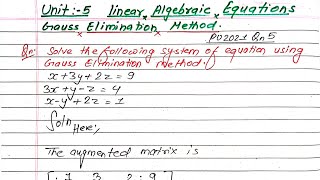 Unit:-5 linear Algebraic Equations
Gauss Elimination Method.
PU2021 Qn5
Qn: Solve the following system of equation using
Gauss Elimination method.
x+3y+2z = 9
3x+y-z = 4
x-y+2z = 1
Soln Here:,
The augmented matrix is